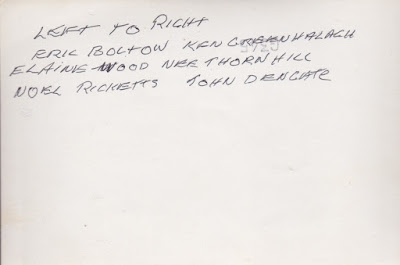 LEFT TO RIGHT
ERIC BOLTON KEN GREENHALAGH
ELAINE WOOD NEE THORNHILL
NOEL RICKETTS JOHN DENGATE